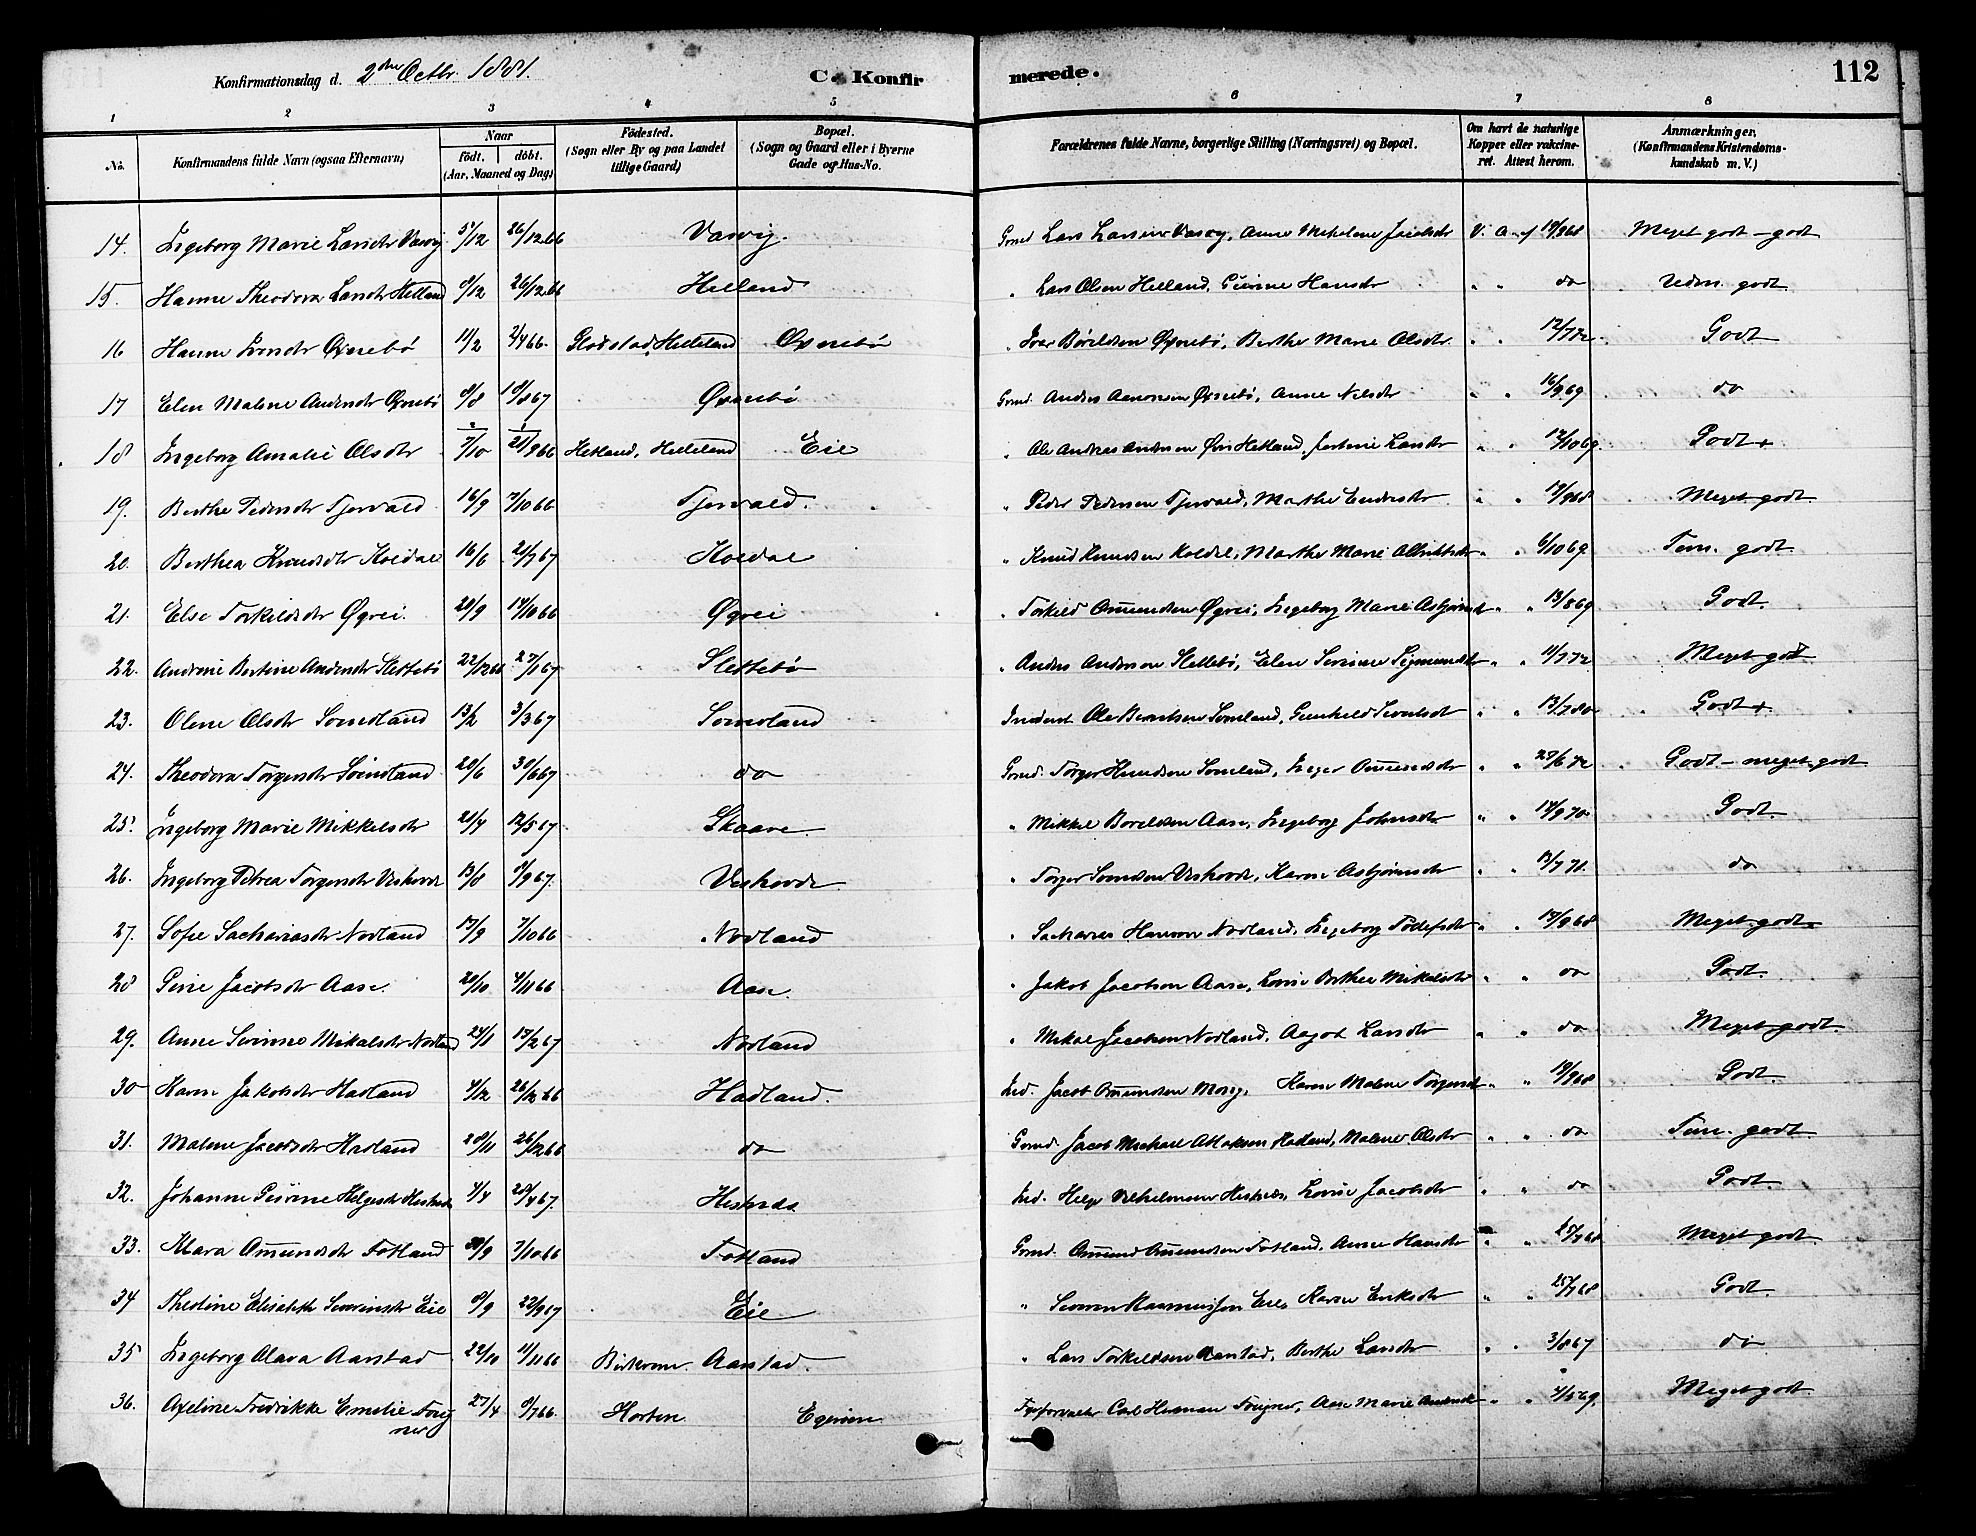 Konfirmationsdag d. 2den Octbr. 1881. C. Konfir merede. 112
1 2 3 4 5 6 7 8
No. Konfirmandens fulde Navn (ogsaa Efternavn) Naar født. døbt. (Aar, Maaned og Dag) Fødested. (Sogn eller By og paa Landet tillige Gaard) Bopæl. (Sogn og Gaard eller i Byerne Gade og Hus-No. Forældrenes fulde Navne, borgerlige Stilling (Næringsvei) og Bopæl. Om havt de naturlige Kopper eller vaccineret. Attest herom. Anmærkninger. (Konfirmandens Kristendomskundskab m. V.)
14. Ingeborg Marie Larsdtr Varvig 5/12 26/12 66 Varvig. Grmd Lars Larsen Varvig, Anne Mikeline Jacobsdtr V. A. af 19/9 68 Meget godt - godt
15. Hanne Theodora Larsdtr Helland 9/12 26/12 66 Helland " Lars Olsen Helland, Gurine Hansdtr " " do Udm. godt.
16 Hanne Iversdtr Øvrebø 11/2 2/4 66. Gladstad, Helleland Øvrebø " Iver Børildsen Øvrebø, Berthe Marie Olsdtr " " 12/7 72. Godt
17 Elen Malene Andersdtr Øvrebø 8/8 18/8 67 Øvrebø Grmd. Andreas Aanonsen Øvrebø, Anne Nilsdtr " " 16/9 69 do
18 Ingeborg Amalie Olsdtr 7/10 21/9 66 Hetland, Helleland Eie " Ole Andreas Andersen Hetland, Larsdtr " " 12/10 69. Godt +
19. Berthe Pedersdtr Tjervald 16/9 7/10 66 Tjervald. " Peder Pedersen Tjervald, Marthe Endresdtr " " 19/9 68 Meget godt.
20. Berthea Knudsdtr Koldal 16/6 21/7 67 Koldal " Knud Knudsen Koldal, Marthe Marie " " 6/10 69. Tem. godt.
21. Else Torkildsdtr Øgrei. 20/9 14/10 66 Øgrei " Torkild Omundsen Øgrei, Ingeborg Marie Asbjørnsd " " 13/8 69 Godt.
22. Andrine Bertine Andersdtr Slettebø 22/12 66 27/1 67 Slettebø " Anders Andersen Slettebø, Elen Serine Sigmundsdtr " " 11/7 72 Meget godt.
23. Olene Olsdtr Sømdland 13/2 3/3 67 Sømdland Ole Berntsen Sømland, Gunhild " " 13/7 80 Godt +
24. Theodora Torgersdtr Sømdland 20/6 30/6 67 do Grmd. Torger Knudsen Sømland, Inger Omundsdtr " " 29/6 72 Godt - meget godt
25. Ingeborg Marie Mikkelsdtr 21/4 12/5 67 Skaare " Mikkel Borildsen Aase, Ingeborg Johnsdtr. " " 14/9 70 Godt.
26. Ingeborg Petrea Torgersdtr Veshovde 13/8 8/9 67. Veshovde " Torger Svendsen Veshovde, Karen Asbjørnsdtr " " 13/7 71. do
27. Sofie Sachariasdtr Nodland 17/9 7/10 66 Nodland " Sacharias Hansen Nodland, Ingeborg Tollefsdtr " " 19/9 68 Meget godt
28 Sine Jacobsdtr Aase 20/10 4/11 66 Aase. " Jakob Jacobsen Aase, Lovise Berthea Mikalsdtr " " do Godt.
29. Anne Serine Mikalsdtr Nodland 24/1 17/2 67 Nodland " Mikal Jacobsen Nodland, Aagot Larsdtr " " do Meget godt.
30 Karen Jakobsdtr Hadland 4/12 26/12 66 Hadland. Ind. Jacob Omundsen Mong, Karen Malene Torgersdtr " " 19/9 68 Godt.
31. Malene Jacobsdtr Hadland 28/11 26/12 66 do Grmd. Jacob Michael Hadland, Malene Olsdtr " " do Tem. godt.
32. Johanne Gurine Helgesdtr Hestnes 4/4 28/4 67. Hestnes Ind. Helge Vilhelmsen Hestnes, Lovise Jacobsdtr " " do Godt.
33. Klara Omundsdtr Totland 20/9 7/10 66 Totland Grmd. Omund Omundsen Totland, Anne Hansdtr " " 25/7 68 Meget godt
34 Thedine Elisabeth Severinsdtr Eie 8/9 22/9 67 Eie " Severin Rasmussen Eie, Karen Eriksdtr " " 25/7 68 Godt.
35 Ingeborg Olava Aarstad 22/10 11/11 66 Birkrem Aarstad. " Lars Torkildsen Aarstad, Berthe Larsdtr " " 3/8 67 do
36. Axeline Fredrikke Emelie Torgner 27/4 8/7 66. Horten Egersen Fyrforvalter Carl Herman, Aase Marie " " 4/5 69. Meget godt.